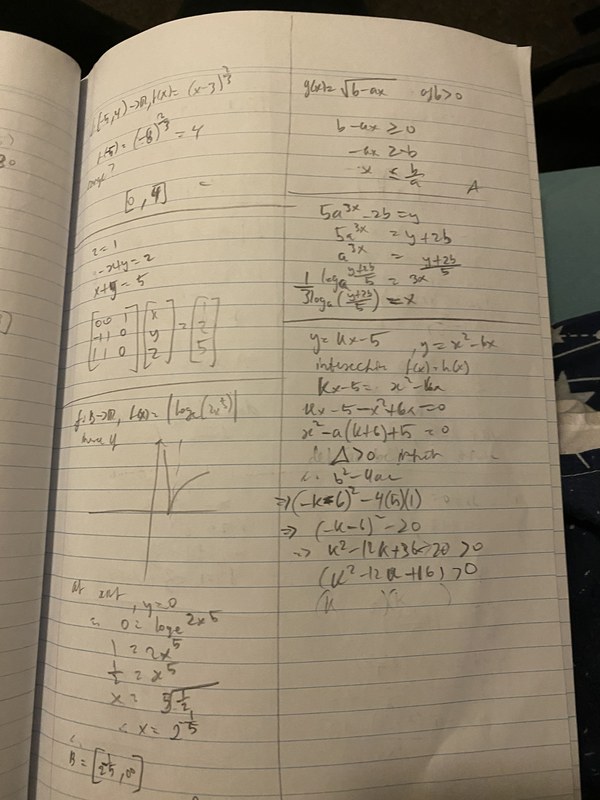 [-5,4)→R, f(x) = (x-3)^{2/3}
f(-5) = (-8)^{2/3} = 4
range?
[0, 4] =
z = 1
-x+y = 2
x+y = 5
[0 0 1] [x] = [ ]
[-1 1 0] [y] [2]
[1 1 0] [z] [5]
f: B→R, f(x) = |log_e(2x^5)|
have
At , y=0
∴ 0 = log_e 2x^5
1 = 2x^5
1/2 = x^5
x = 5√(1/2)
∴ x = 2^{-1/5}
∴
B = [2^{-1/5}, ∞]
g(x) = √(b-ax) a,b>0
b-ax ≥ 0
-ax ≥ -b
x ≤ b/a
A
5a^{3x} - 2b = y
5a^{3x} = y+2b
a^{3x} = (y+2b)/5
log_a (y+2b)/5 = 3x
1/3 log_a ((y+2b)/5) = x
y = kx-5 , y = x²-6x
intersection f(x) = h(x)
kx-5 = x²-6x
kx-5-x²+6x=0
x²-x(k+6)+5 = 0
Δ>0
∴ b²-4ac
⇒ (-k-6)²-4(5)(1)
⇒ (-k-6)²-20
⇒ k²-12k+36-20 >0
(k²-12k+16) >0
(k )(k )